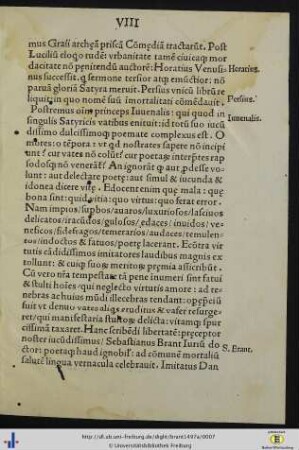 VIII
mus Grasi archeā priscā Comędiā tractarūt. Post
Luciliū eloqo rudēt vrbanitate tamē ciuicaqȝ mor
dacitate nō penitendū auctorē: Horatius Venusi-
Horatius.
nus successit. q sermone tersior atqȝ emūctior: nō
paruā gloriā Satyra meruit. Persius vnicū librū re
liquit: in quo nomē suū imortalitati cōmēdauit.
Persius.
Postremus oīm princeps Iuuenalis: qui quod in
Iuuenalis.
singulis Satyricis vatibus enituit: id totū suo iucū
dissimo dulcissimoqȝ poemate complexus est. O
mores: o tēpora: vt qd nostrates sapere nō incipi
unt: cur vates nō colūt: cur poetas interprętes rap
sodosqȝ nō venerāt: An ignorāt q aut pdesse vo-
lunt: aut delectare poetę: aut simul & iucunda &
idonea dicere vitę. Edocent enim quę mala: quę
bona sint: quid vitia: quo virtus: quo ferat error.
Nam impios/supbos/auaros/luxuriosos/lasciuos
delicatos/iracūdos/gulosos/edaces/inuidos/ve-
neficos/fidefragos/temerarios/audaces/temulen-
tos/indoctos & fatuos/poetę lacerant. Ecōtra vir
tutis cādidissimos imitatores laudibus magnis ex
tollunt: & cuiqȝ suo & merito & pręmia asscribūt.
Cū vero nrā tempestate tā pene inumeri sint fatui
& stulti hoīes: qui neglecto virtutis amore: ad te-
nebras ac huius mūdi illecebras tendant: oppeiū
fuit vt denuo vates aliqs eruditus & vafer resurge-
ret: qui manifestaria stultoȝ delicta: vitamqȝ spur
cissimā taxaret. Hanc scribēdi libertatē: pręceptor
noster iucūdissimus/Sebastianus Brant Iuriū do
S. Brant.
ctor: poetaqȝ haud ignobilis: ad cōmunē mortaliū
salutē lingua vernacula celebrauit. Imitatus Dan
http://dl.ub.uni-freiburg.de/diglit/brant1497a/0007
© Universitätsbibliothek Freiburg